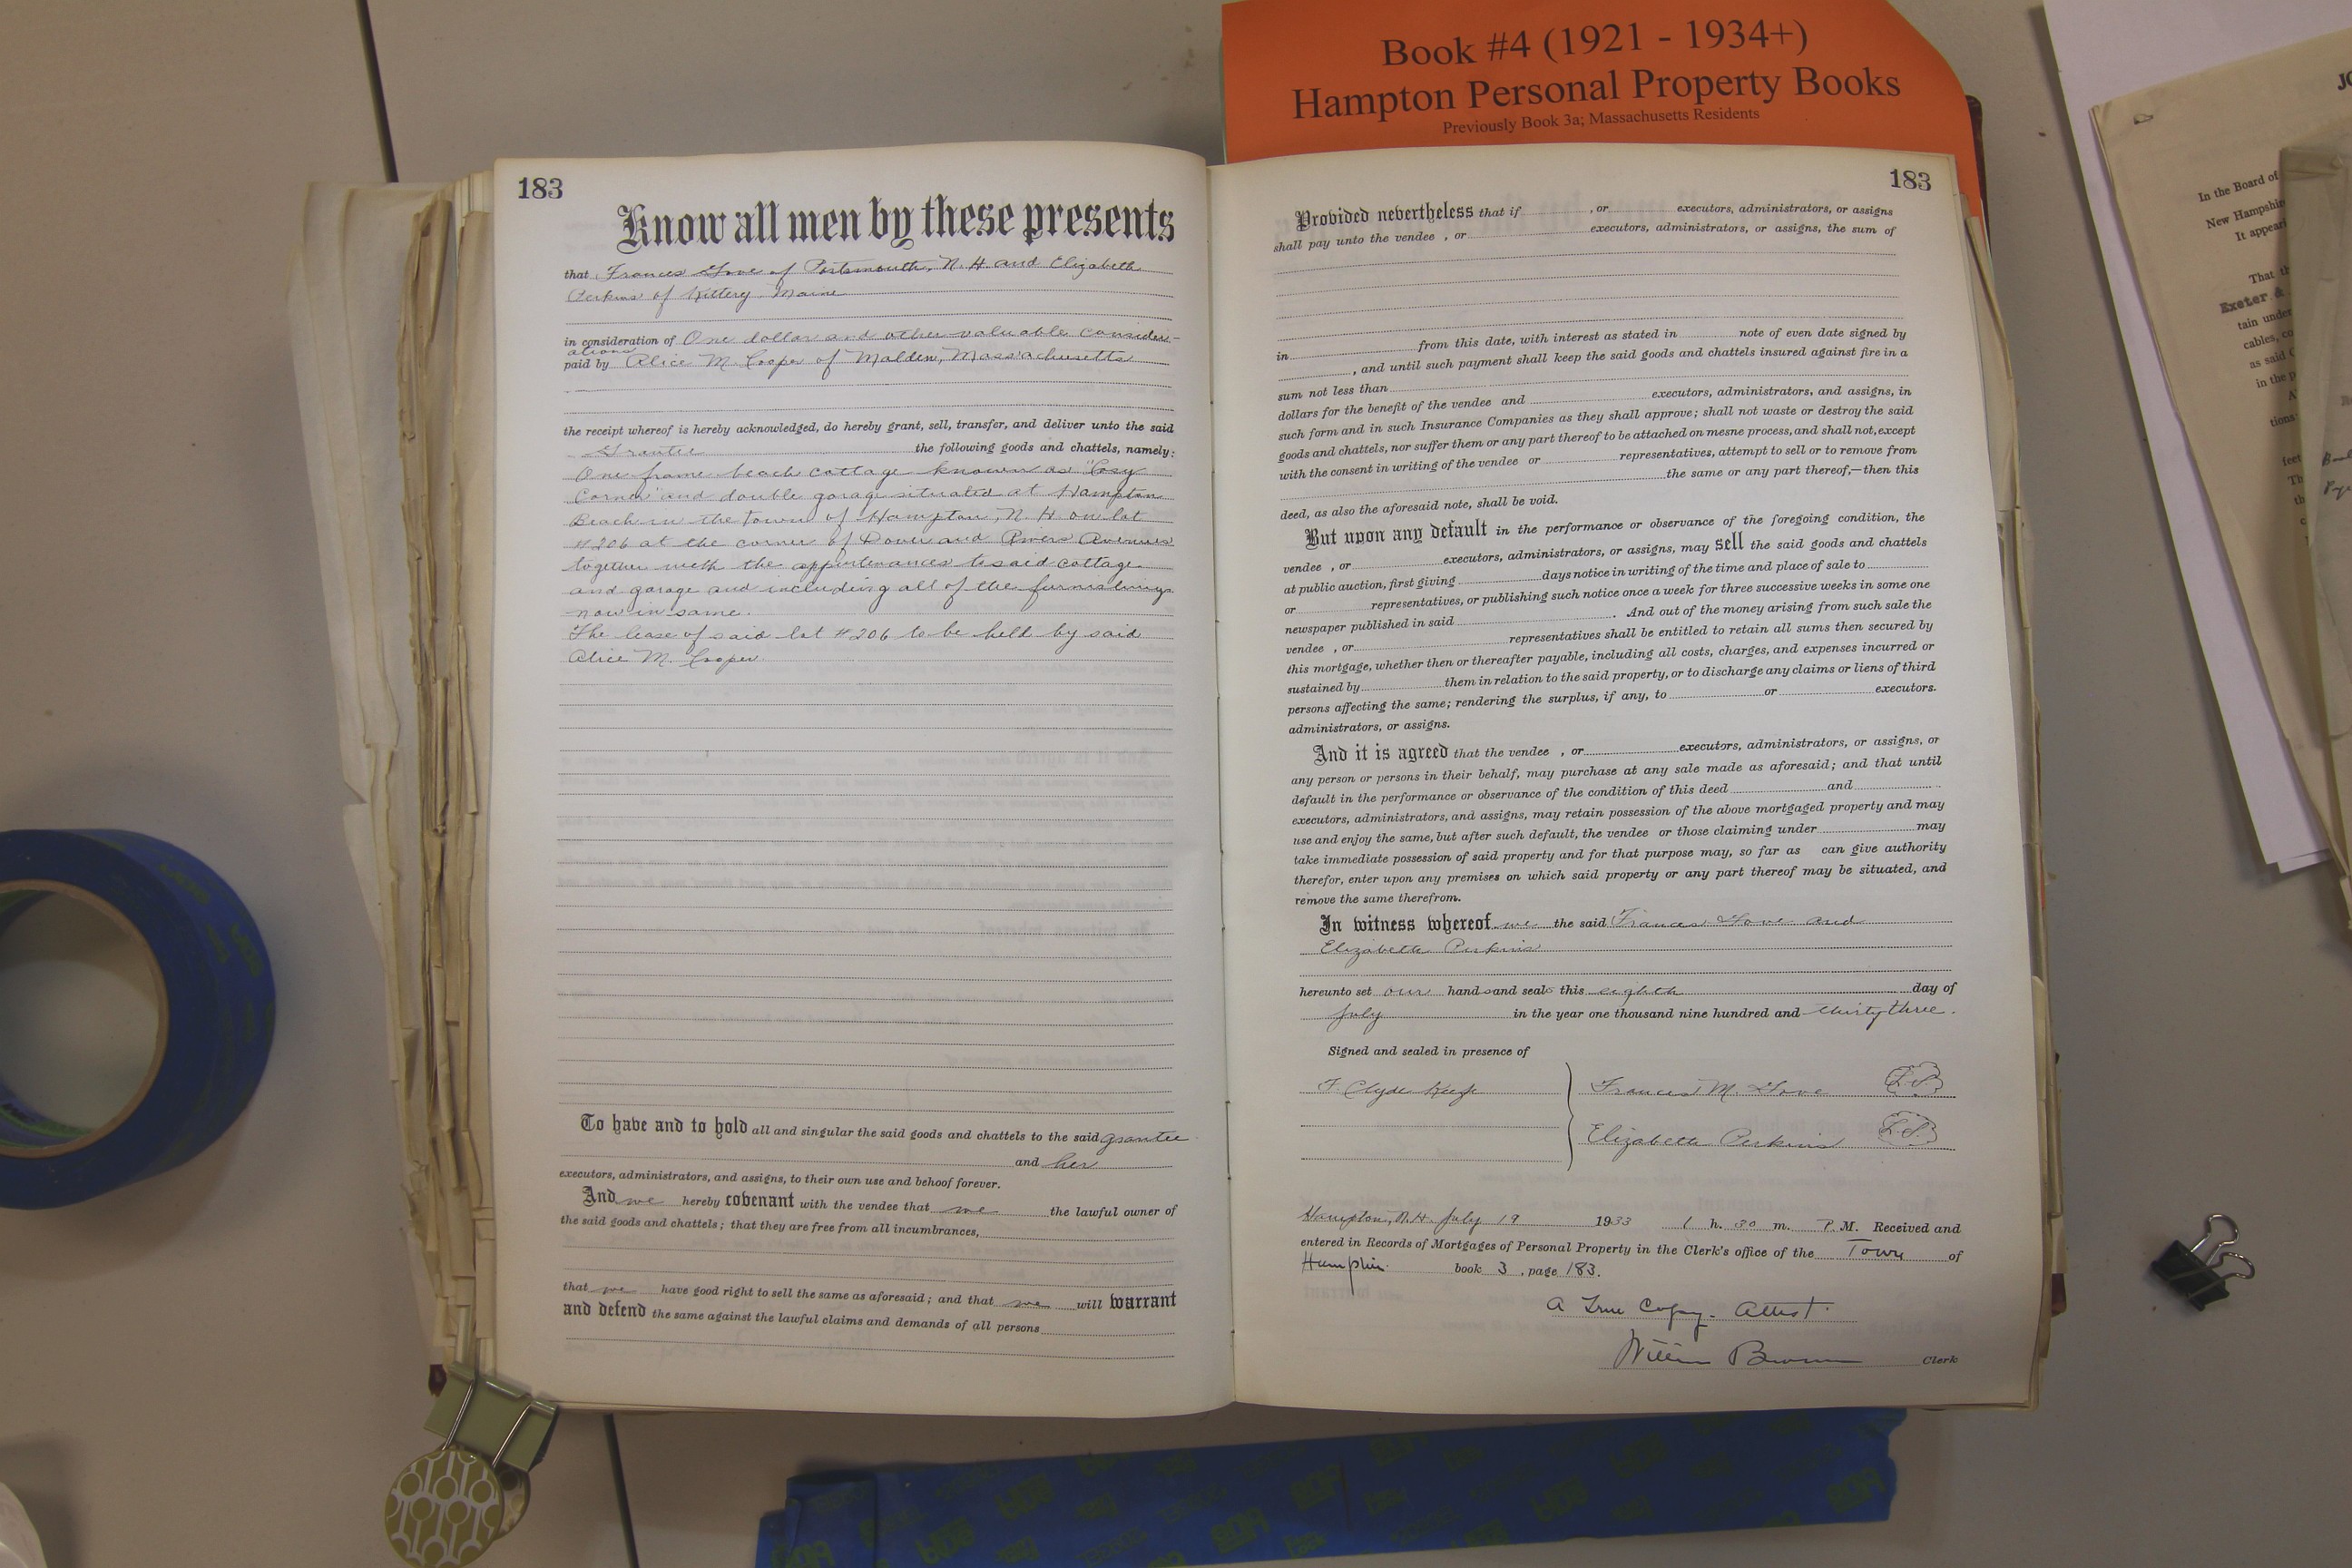 Book #4 (1921 - 1934+)
Hampton Personal Property Books
Previously Book 3a; Massachusetts Residents
183
Know all men by these presents
that Frances Gove of Portsmouth, N. H. and Elizabeth
Perkins of Kittery, Maine
in consideration of One dollar and other valuable consider-
ations
paid by Alice M. Cooper of Malden, Massachusetts
the receipt whereof is hereby acknowledged, do hereby grant, sell, transfer, and deliver unto the said
Grantee the following goods and chattels, namely:
One frame beach cottage known as "Cosy
Corner" and double garage situated at Hampton
Beach in the Town of Hampton, N. H. on lot
#206 at the corner of Dover and Rivers Avenues
together with the appurtenances to said cottage
and garage and including all of the furnishings
now in same.
The lease of said lot #206 to be held by said
Alice M. Cooper.
To have and to hold all and singular the said goods and chattels to the said grantee
and her
executors, administrators, and assigns, to their own use and behoof forever.
And we hereby covenant with the vendee that we the lawful owner of
the said goods and chattels; that they are free from all incumbrances,
that we have good right to sell the same as aforesaid; and that we will warrant
and defend the same against the lawful claims and demands of all persons
183
Provided nevertheless that if , or executors, administrators, or assigns
shall pay unto the vendee , or executors, administrators, or assigns, the sum of
in from this date, with interest as stated in note of even date signed by
, and until such payment shall keep the said goods and chattels insured against fire in a
sum not less than
dollars for the benefit of the vendee and executors, administrators, and assigns, in
such form and in such Insurance Companies as they shall approve; shall not waste or destroy the said
goods and chattels, nor suffer them or any part thereof to be attached on mesne process, and shall not, except
with the consent in writing of the vendee or representatives, attempt to sell or to remove from
the same or any part thereof,—then this
deed, as also the aforesaid note, shall be void.
But upon any default in the performance or observance of the foregoing condition, the
vendee , or executors, administrators, or assigns, may sell the said goods and chattels
at public auction, first giving days notice in writing of the time and place of sale to
or representatives, or publishing such notice once a week for three successive weeks in some one
newspaper published in said . And out of the money arising from such sale the
vendee , or representatives shall be entitled to retain all sums then secured by
this mortgage, whether then or thereafter payable, including all costs, charges, and expenses incurred or
sustained by them in relation to the said property, or to discharge any claims or liens of third
persons affecting the same; rendering the surplus, if any, to or executors.
administrators, or assigns.
And it is agreed that the vendee , or executors, administrators, or assigns, or
any person or persons in their behalf, may purchase at any sale made as aforesaid; and that until
default in the performance or observance of the condition of this deed and
executors, administrators, and assigns, may retain possession of the above mortgaged property and may
use and enjoy the same, but after such default, the vendee or those claiming under may
take immediate possession of said property and for that purpose may, so far as can give authority
therefor, enter upon any premises on which said property or any part thereof may be situated, and
remove the same therefrom.
In witness whereof we the said Frances Gove and
Elizabeth Perkins
hereunto set our hands and seals this eighth day of
July in the year one thousand nine hundred and thirty three.
Signed and sealed in presence of
F. Clyde Keefe Frances M. Gove L.S.
Elizabeth Perkins L.S.
Hampton, N.H. July 19 1933 1 h. 30 m. P. M. Received and
entered in Records of Mortgages of Personal Property in the Clerk's office of the Town of
Hampton book 3 , page 183.
A True Copy. Attest.
William Brown Clerk
In the Board of
New Hampshire
It appear
That th
Exeter &
tain under
cables, co
as said
in the p
tions